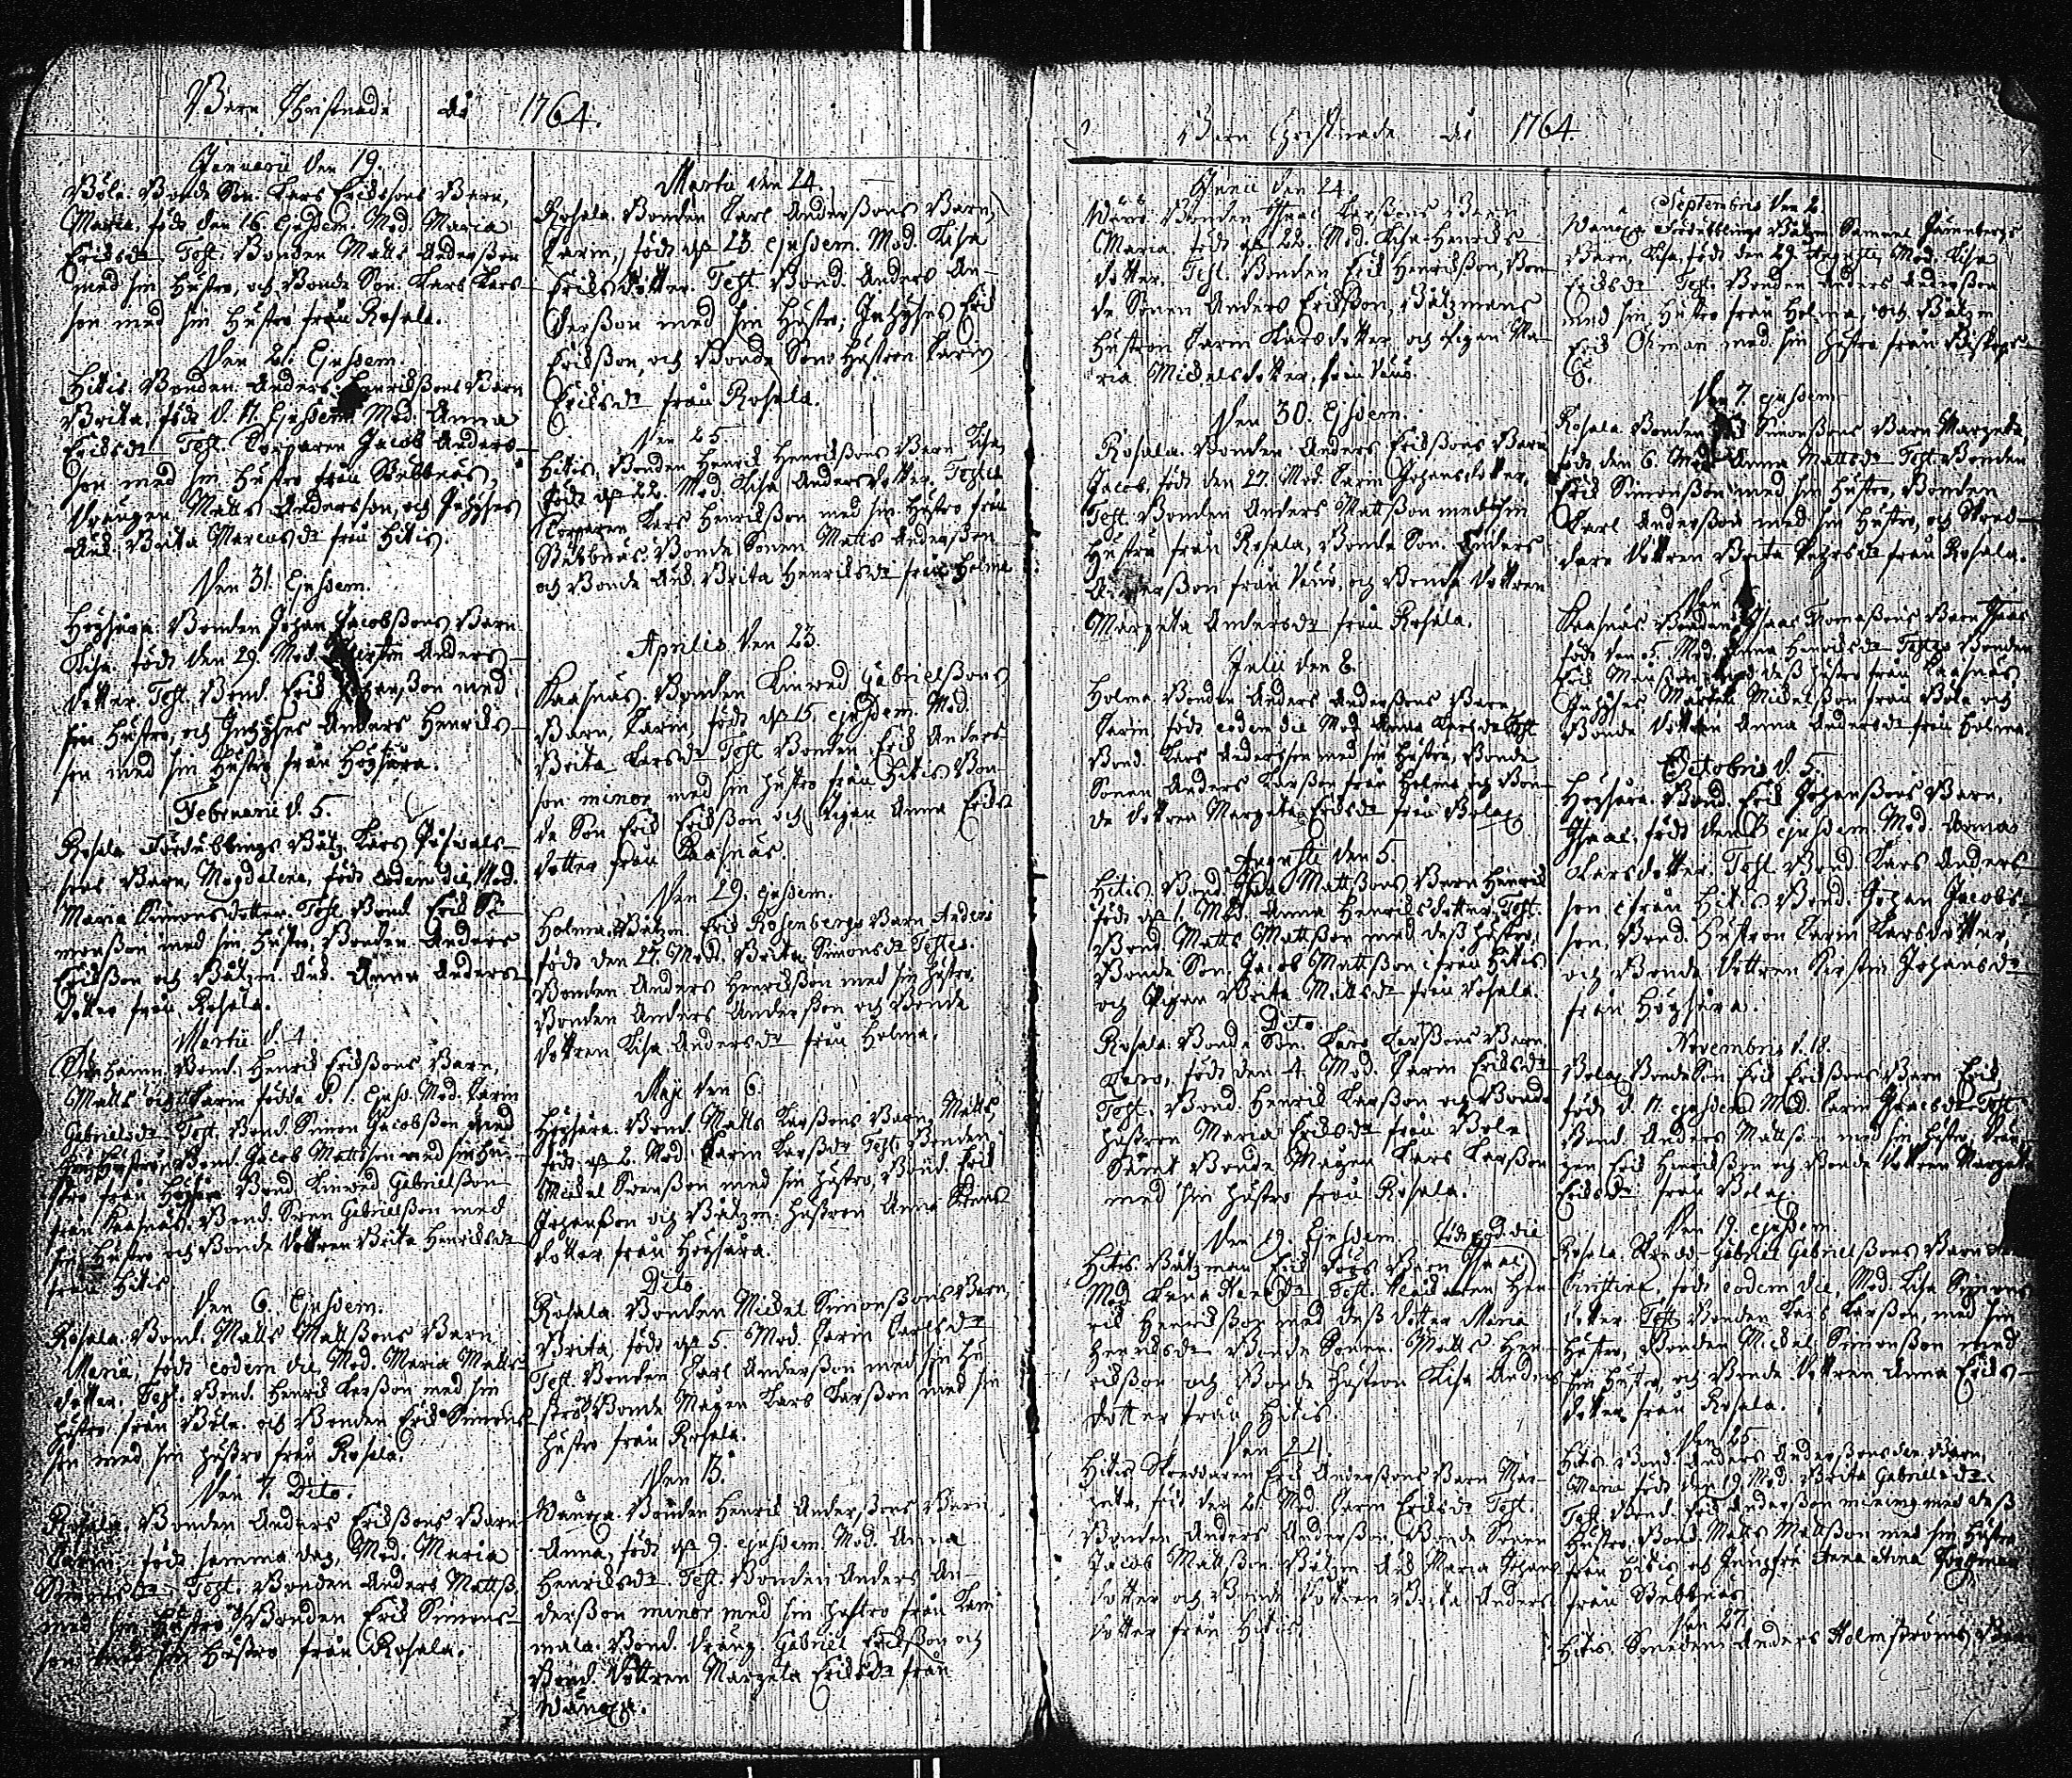 Barn Christnade år 1764.
Januarii den 19.
Böle. Bonde Son. Lars Erikssons Barn,
Maria, född den 16. Ejusdem. Mod. Maria
Eriksdr Test. Bonden Matts Andersson
med sin Hustro, och Bonde Son. Lars Lars-
son med sin Hustro från Rosala.
Den 21. Ejusdem.
Hitis. Bonden Anders Henrikssons Barn
Brita, född d. 17. Ejusdem Mod. Anna
Eriksdr Test. Torparen Jacob Anders-
son med sin Hustro från Stubbnäs,
Drängen Matts Andersson, och Inhyses
Brita Marcusdr från Hitis.
Den 31. Ejusdem.
Högsåra. Bonden Johan Jacobssons Barn
Lisa. född den 29. Mod. Kirstin Anders-
dotter Test. Bond. Erik Johansson med
sin Hustro, och Inhyses Anders Henriks-
son med sin Hustro från Högsåra.
Februarii d. 5.
Rosala Fördubblings Båtz. Lars
Barn, Magdalena, född eodem die, Mod.
Maria Simonsdotter. Test. Bond. Erik Si-
monsson med sin Hustro, Bonden Anders
Eriksson och Båtzm. Anna Anders-
dotter från Rosala.
Martii d. 4.
Bond. Henrik Erikssons Barn,
Matts och Carin födde d. 1. Ejusd. Mod. Carin
Gabrielsdr Test. Bond. Simon Jacobsson med
sin Hustro, Bond. Jacob Mattsson med sin Hu-
stro från Högsåra Bond. Linwed Gabrielsson
från Kaasnäs. Bond. Sven Gabrielsson med
sin Hustro och Bonde Dottren Brita Henriksdr
från Hitis.
Den 6. Ejusdem.
Rosala. Bond. Matts Mattssons Barn
Maria, född eodem die, Mod. Maria Matts-
dotter, Test. Bond. Henrik Larsson med sin
Hustro från Böle och Bonden Erik Simons-
son med sin Hustro från Rosala.
Den 7. Dito.
Rosala. Bonden Anders Erikssons Barn
Carin född samma dag, Mod. Maria
Simonsdr Test. Bonden Anders Mattss.
med sin Hustro, Bonden Erik Simons-
son med sin Hustro från Rosala.
Martii den 24.
Rosala. Bonden Carl Anderssons Barn,
Carin, född d. 23. ejusdem. Mod. Lisa
Eriksdotter. Test. Bond. Anders An-
dersson med sin Hustro; Inhyses Erik
Eriksson, och Bonde Sons Hustron Carin
Eriksdr från Rosala.
Den 25
Hitis. Bonden Henrik Henrikssons Barn Lisa
född d. 22. Mod. Lisa Andersdotter. Testes
Torparen Lars Henriksson med sin Hustro från
Stubbnäs. Bonde Sonen Matts Andersson
och Bonde Brita Henriksdr från Holma
Aprilis den 23.
Kaasnäs. Bonden Linwed Gabrielssons
Barn, Carin, född d. 15. ejusdem. Mod.
Brita Larsdr Test. Bonden Erik Anders-
son minor med sin Hustro från Hitis Bon-
de Son Erik Eriksson och Pigan Anna Eriks
dotter från Kaasnäs.
Den 29. Ejusdem.
Holma. Båtzm. Erik Rosenbergs Barn Anders
född den 27. Mod. Brita Simonsdr Testes.
Bonden Anders Henriksson med sin Hustro,
Bonden Anders Andersson och Bonde
Dottren Lisa Andersdr från Holma.
Maji den 6.
Högsåra. Bond. Matts Larssons Barn, Matts
född d. 2. Mod. Carin Larsdr Test. Bonden
Mickel Svensson med sin Hustro, Bond. Erik
Johansson och Båtzm. Hustron Anna
dotter från Högsåra.
Dito
Rosala. Bonden Mickel Simonssons Barn,
Brita, född d. 5. Mod. Carin Carlsdr
Test. Bonden Carl Andersson med sin Hu
stro, Bonde Magen Lars Larsson med sin
Hustro från Rosala.
Den 13.
Wänoxa. Bonden Henrik Anderssons Barn
Anna, född d. 9. ejusdem. Mod. Anna
Henriksdr. Test. Bonden Anders An-
dersson minor med sin Hustro från
Bond. Dräng. Gabriel Eriksson och
Bond. Dottren Margeta Eriksdr från
Wänoxa.
Barn Christnade år 1764
Junii den 24.
Wänö. Bonden Isaac Larssons Barn
Maria, född d. 22. Mod. Lisa Henriks-
dotter, Test. Bonden Erik Henriksson, Bon-
de Sonen Anders Eriksson, Båtzmans
Hustron Carin Larsdotter och Pigan Ma-
ria Mickelsdotter, från Wänö.
Den 30. Ejusdem.
Rosala. Bonden Anders Erikssons Barn
Jacob, född den 27. Mod. Carin Johansdotter,
Test. Bonden Anders Mattsson med sin
Hustru från Rosala, Bonde Son. Anders
Andersson från Wänö, och Bonde Dottren
Margeta Andersdr från Rosala.
Julii den 8.
Holma. Bonden Anders Anderssons Barn
Carin, född eodem die Mod. Anna Larsdr Test.
Bond. Lars Andersson med sin Hustro, Bonde
Sonen Anders Larsson från Holma och Bon-
de Dottren Margeta Eriksdr från Bolax
Augusti den 5.
Hitis. Bond. Mattssons Barn Henrik
född d. 1. Mod. Anna Henriksdotter, Test.
Bond. Matts Mattsson med dess Hustro,
Bonde Son. Jacob Mattsson från Hitis
och Pigan Brita Mattsdr från Rosala.
Dito
Rosala. Bonde Son. Lars Larssons Barn
Lars, född den 4. Mod. Carin Eriksdr
Test. Bond. Henrik Larsson och Bonde
Hustron Maria Eriksdr från Böle
Samt Bonde Magen Lars Larsson
med sin Hustro från Rosala.
Den 19. Ejusdem. född eod. die
Hitis. Båtzman Erik Barn Isaac
Mod. Test. Hen-
rik Henriksson med dess Dotter Maria
Henriksdr Bonde Sonen Matts Hen-
riksson och Bonde Hustron Lisa Anders
dotter från Hitis.
Den 24.
Hitis Skräddaren Erik Anderssons Barn Mar-
geta, född den 21. Mod. Carin Eriksdr Test.
Bonden Anders Andersson, Bonde Sonen
Jacob Mattsson. Båtzm. Maria Johans
dotter och Bonde Dottren Brita Anders
dotter från Hitis.
Septembris den 2.
Wänoxa Fördubblings Båtzm. Samuel
Barn, Lisa, född den 29. Augusti, Mod. Lisa
Eriksdr. Test. Bonden Anders Andersson
med sin Hustro från Holma, och Båtzm
Erik Öhman med sin Hustro från
Den 7. ejusdem
Rosala. Bonden Simonssons Barn Margeta,
född den 6. Mod. Anna Mattsdr Test. Bonden
Erik Simonsson med sin Hustro, Bonden
Carl Andersson med sin Hustro, och
Dottren Brita från Rosala.
Den
Kaasnäs. Bonden Isaac Thomassons Barn Isaac
född den 5. Mod. Anna Henriksdr Testes Bonden
Erik Månsson med dess Hustro från Kaasnäs
Inhyses Mårten Mickelsson från Böle och
Bonde Dottren Anna Andersdr från Holma.
Octobris d. 5.
Högsåra. Bond. Erik Johanssons Barn,
Isaac, född den 3 ejusdem Mod. Anna
Larsdotter, Test. Bond. Lars Anders-
son från Hitis Bond. Johan Jacobs-
son, Bond. Hustron Carin Larsdotter,
och Bonde Dottren Kirstin Johansdr
från Högsåra.
Novembris d. 18.
Bolax Bonde Son Erik Erikssons Barn Erik,
född d. 17. ejusdem Mod. Carin Isacsdr Test.
Bond. Anders Mattsson med sin Hustro, Drän-
gen Erik Henriksson och Bonde Dottren Margeta
Eriksdr från Bolax
Den 19. ejusdem
Rosala. Gabriel Gabrielssons Barn
Christina, född eodem die, Mod. Lisa Simons
dotter Test. Bonden Lars Larsson, med sin
Hustro, Bonden Mickel Simonsson med
sin Hustro, och Bonde Dottren Anna Eriks-
dotter från Rosala.
Den 25
Hitis. Bond. Anders Anderssons Barn,
Maria född den 19. Mod. Brita Gabrielsdr.
Test. Bond. Erik Andersson minor med dess
Hustro, Bond. Matts Mattsson med sin Hustro
från Hitis och Jungfru Anna
från Stubbnäs
Den 27.
Hitis. Anders Holmströms Barn